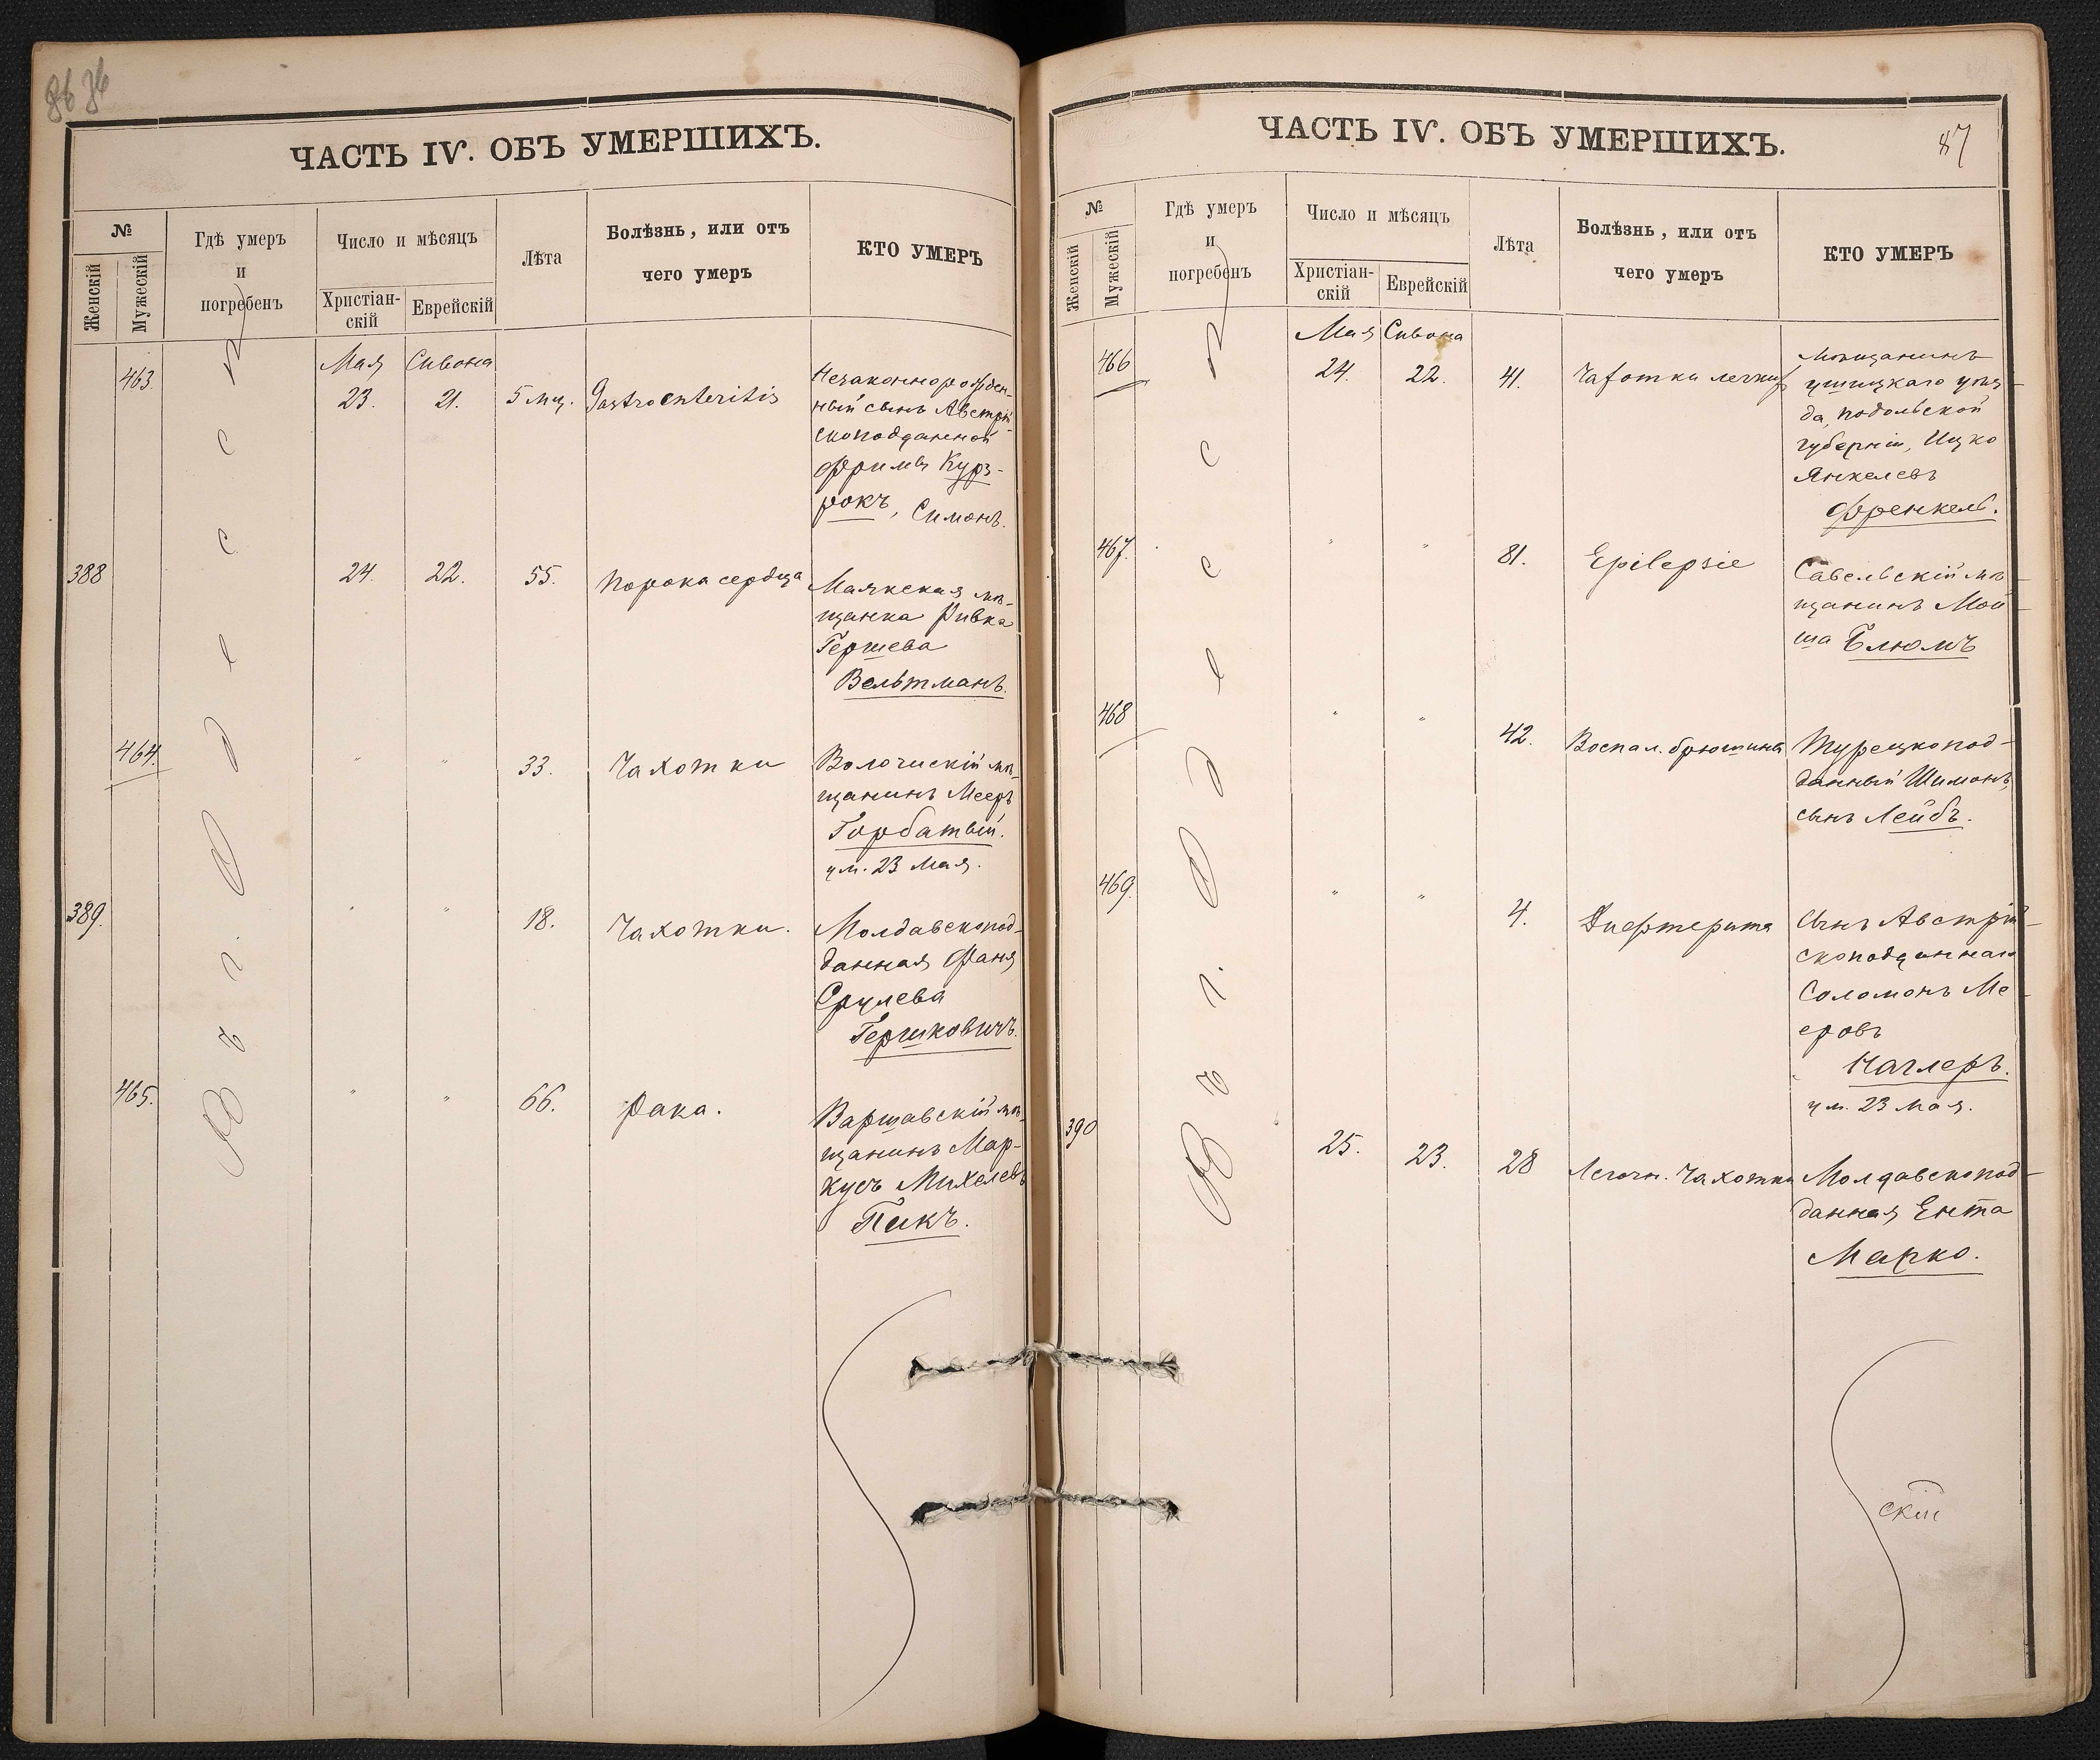 86 36
ЧАСТЬ IV. ОБЪ УМЕРШИХЪ.
№
Женскій
Мужескій
Гдѣ умеръ
и
погребенъ
Число и мѣсяцъ
Христіан-
скій
Еврейскій
Лѣта
Болѣзнь, или отъ
чего умеръ
КТО УМЕРЪ
Въ г. Одессѣ
Мая Сивона
463. 23. 21. 5 мц. Gastroenteritis
Незаконнорожден-
ный сынъ Австрій-
скоподданной
Фримы Курз-
рокъ, Симонъ.
388 24. 22. 55. Порока сердца
Маякская мѣ-
щанка Ривка
Гершева
Вельтманъ.
464. " " 33. Чахотки
Волочискій мѣ-
щанинъ Мееръ
Горбатый.
ум. 23 Мая.
389. " " 18. Чахотки.
Молдавскопод-
данная Фаня
Срулева
Гершковичъ.
465. " " 66. Рака.
Варшавскій мѣ-
щанинъ Мар-
кусъ Михелевъ
Пикъ.
ЧАСТЬ IV. ОБЪ УМЕРШИХЪ.
87
№
Женскій
Мужескій
Гдѣ умеръ
и
погребенъ
Число и мѣсяцъ
Христіан-
скій
Еврейскій
Лѣта
Болѣзнь, или отъ
чего умеръ
КТО УМЕРЪ
Въ г. Одессѣ
Мая Сивона
466 24. 22. 41. Чахотки легкихъ
Мѣщанинъ
ушицкаго уѣз-
да, подольской
губерніи, Ицко
Янкелевъ
Френкель.
467. " " 81. Epilepsie
Савельскій мѣ-
щанинъ Мой-
ша Блюмъ
468 " " 42. Воспал. брюшины
Турецкопод-
данный Шимонъ,
сынъ Лейбъ.
469. " " 4. Дифтерита
Сынъ Австрій-
скоподданнаго
Соломонъ Ме-
еровъ
Наглеръ.
ум. 23 Мая.
390 25. 23. 28 Легочн. Чахотки
Молдавскопод-
данная Ента
Марко.
скій